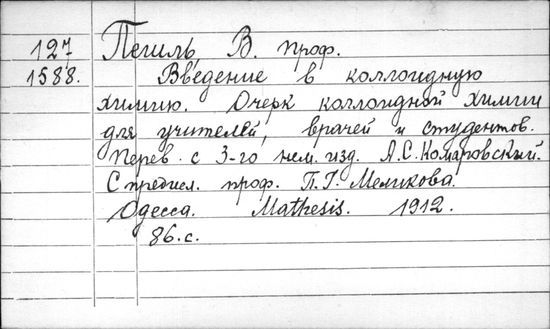 127 Пешль, В. проф.
1588. Введение в коллоидную
химию. Очерк коллоидной химии
для учителей, врачей и студентов.
Перев. с 3-го нем. изд. А.С. Комаровский.
С предисл. проф. П.Г. Меликова.
Одесса. Mathesis. 1912.
86. с.